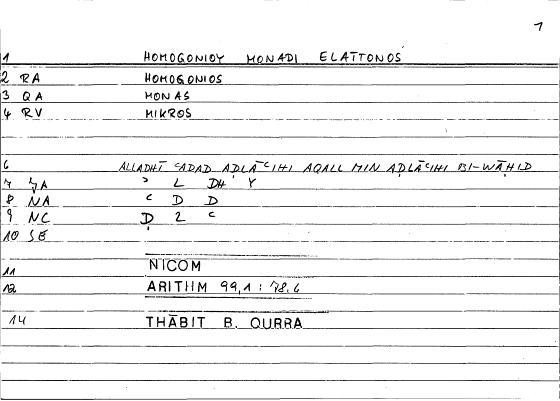 7
1 HOMOGONIOY MONADI ELATTONOS
2 RA HOMOGONIOS
3 QA MONAS
4 RV MIKROS
6 ALLADHĪ ʿADAD AḌLĀʿIHI AQALL MIN AḌLĀʿIHI BI-WĀḤID
ʾ L DH Y
8 NA ʿ D D
9 NC Ḍ 2 ʿ
10 SE
11 NICOM
12 ARITHM 99,1 : 78.6
14 THĀBIT B. QURRA